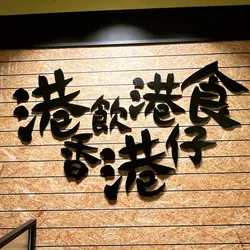 港飲港食
香港仔